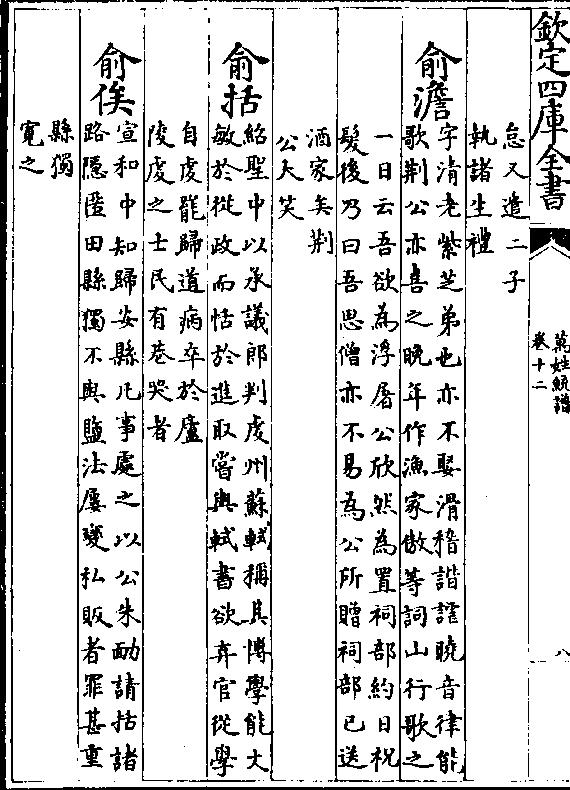 欽定四庫全書
萬姓統譜
卷十二
八
怠又造二子
執諸生禮
俞澹
字清老紫芝弟也亦不娶滑稽諧謔曉音律能
歌荆公亦喜之晚年作漁家傲等詞山行歌之
一日云吾欲為浮屠公欣然為置祠部約日祝
髮後乃曰吾思僧亦不易為公所贈祠部已送
酒家矣荆
公大笑
俞括
紹聖中以承議郎判䖍州蘇軾稱其博學能文
敏於從政而恬於進取嘗與軾書欲弃官從學
自䖍罷歸道病卒於廬
陵䖍之士民有巷哭者
俞俟
宣和中知歸安縣凡事處之以公朱勔請括諸
路隱匿田縣獨不與鹽法屢變私販者罪甚重
縣獨
寛之